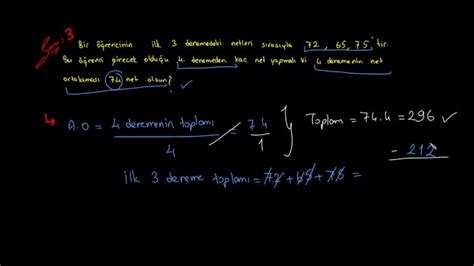 Soru: 3
Bir öğrencinin ilk 3 denemedeki netleri sırasıyla 72, 65, 75 'tir.
Bu öğrenci girecek olduğu 4. denemeden kaç net yapmalı ki 4 denemenin net
ortalaması 74 net olsun?
A.O = 4 denemenin toplamı / 4 = 74 / 1 Toplam = 74.4 = 296
- 212
İlk 3 deneme toplamı = 72 + 65 + 75 =